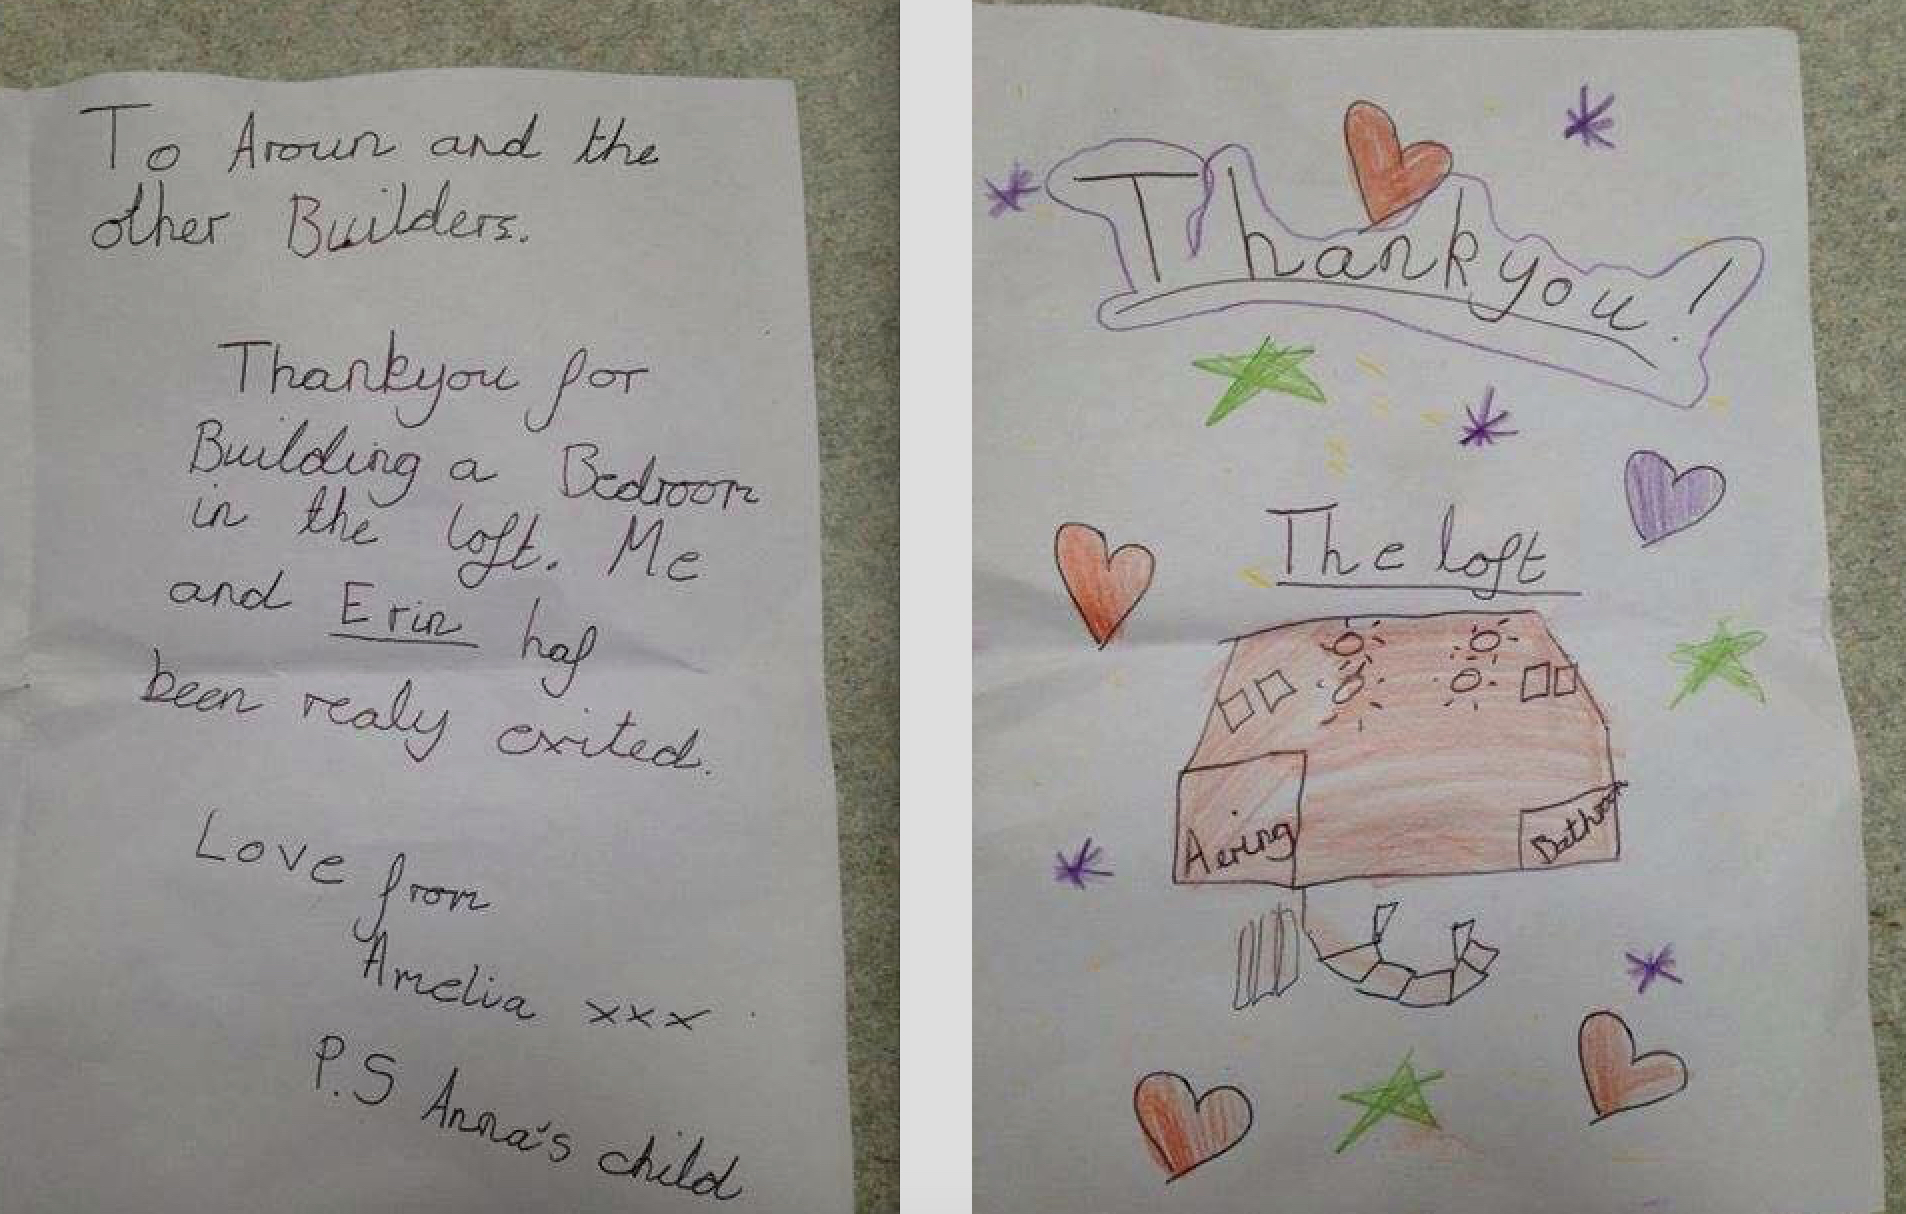 To Aroun and the
other Builders.
Thankyou for
Building a Bedroom
in the loft. Me
and Erin haf
been realy exited.
Love from
Amelia xxx
P.S Anna's child
Thankyou!
The loft
Aering
Bathroom